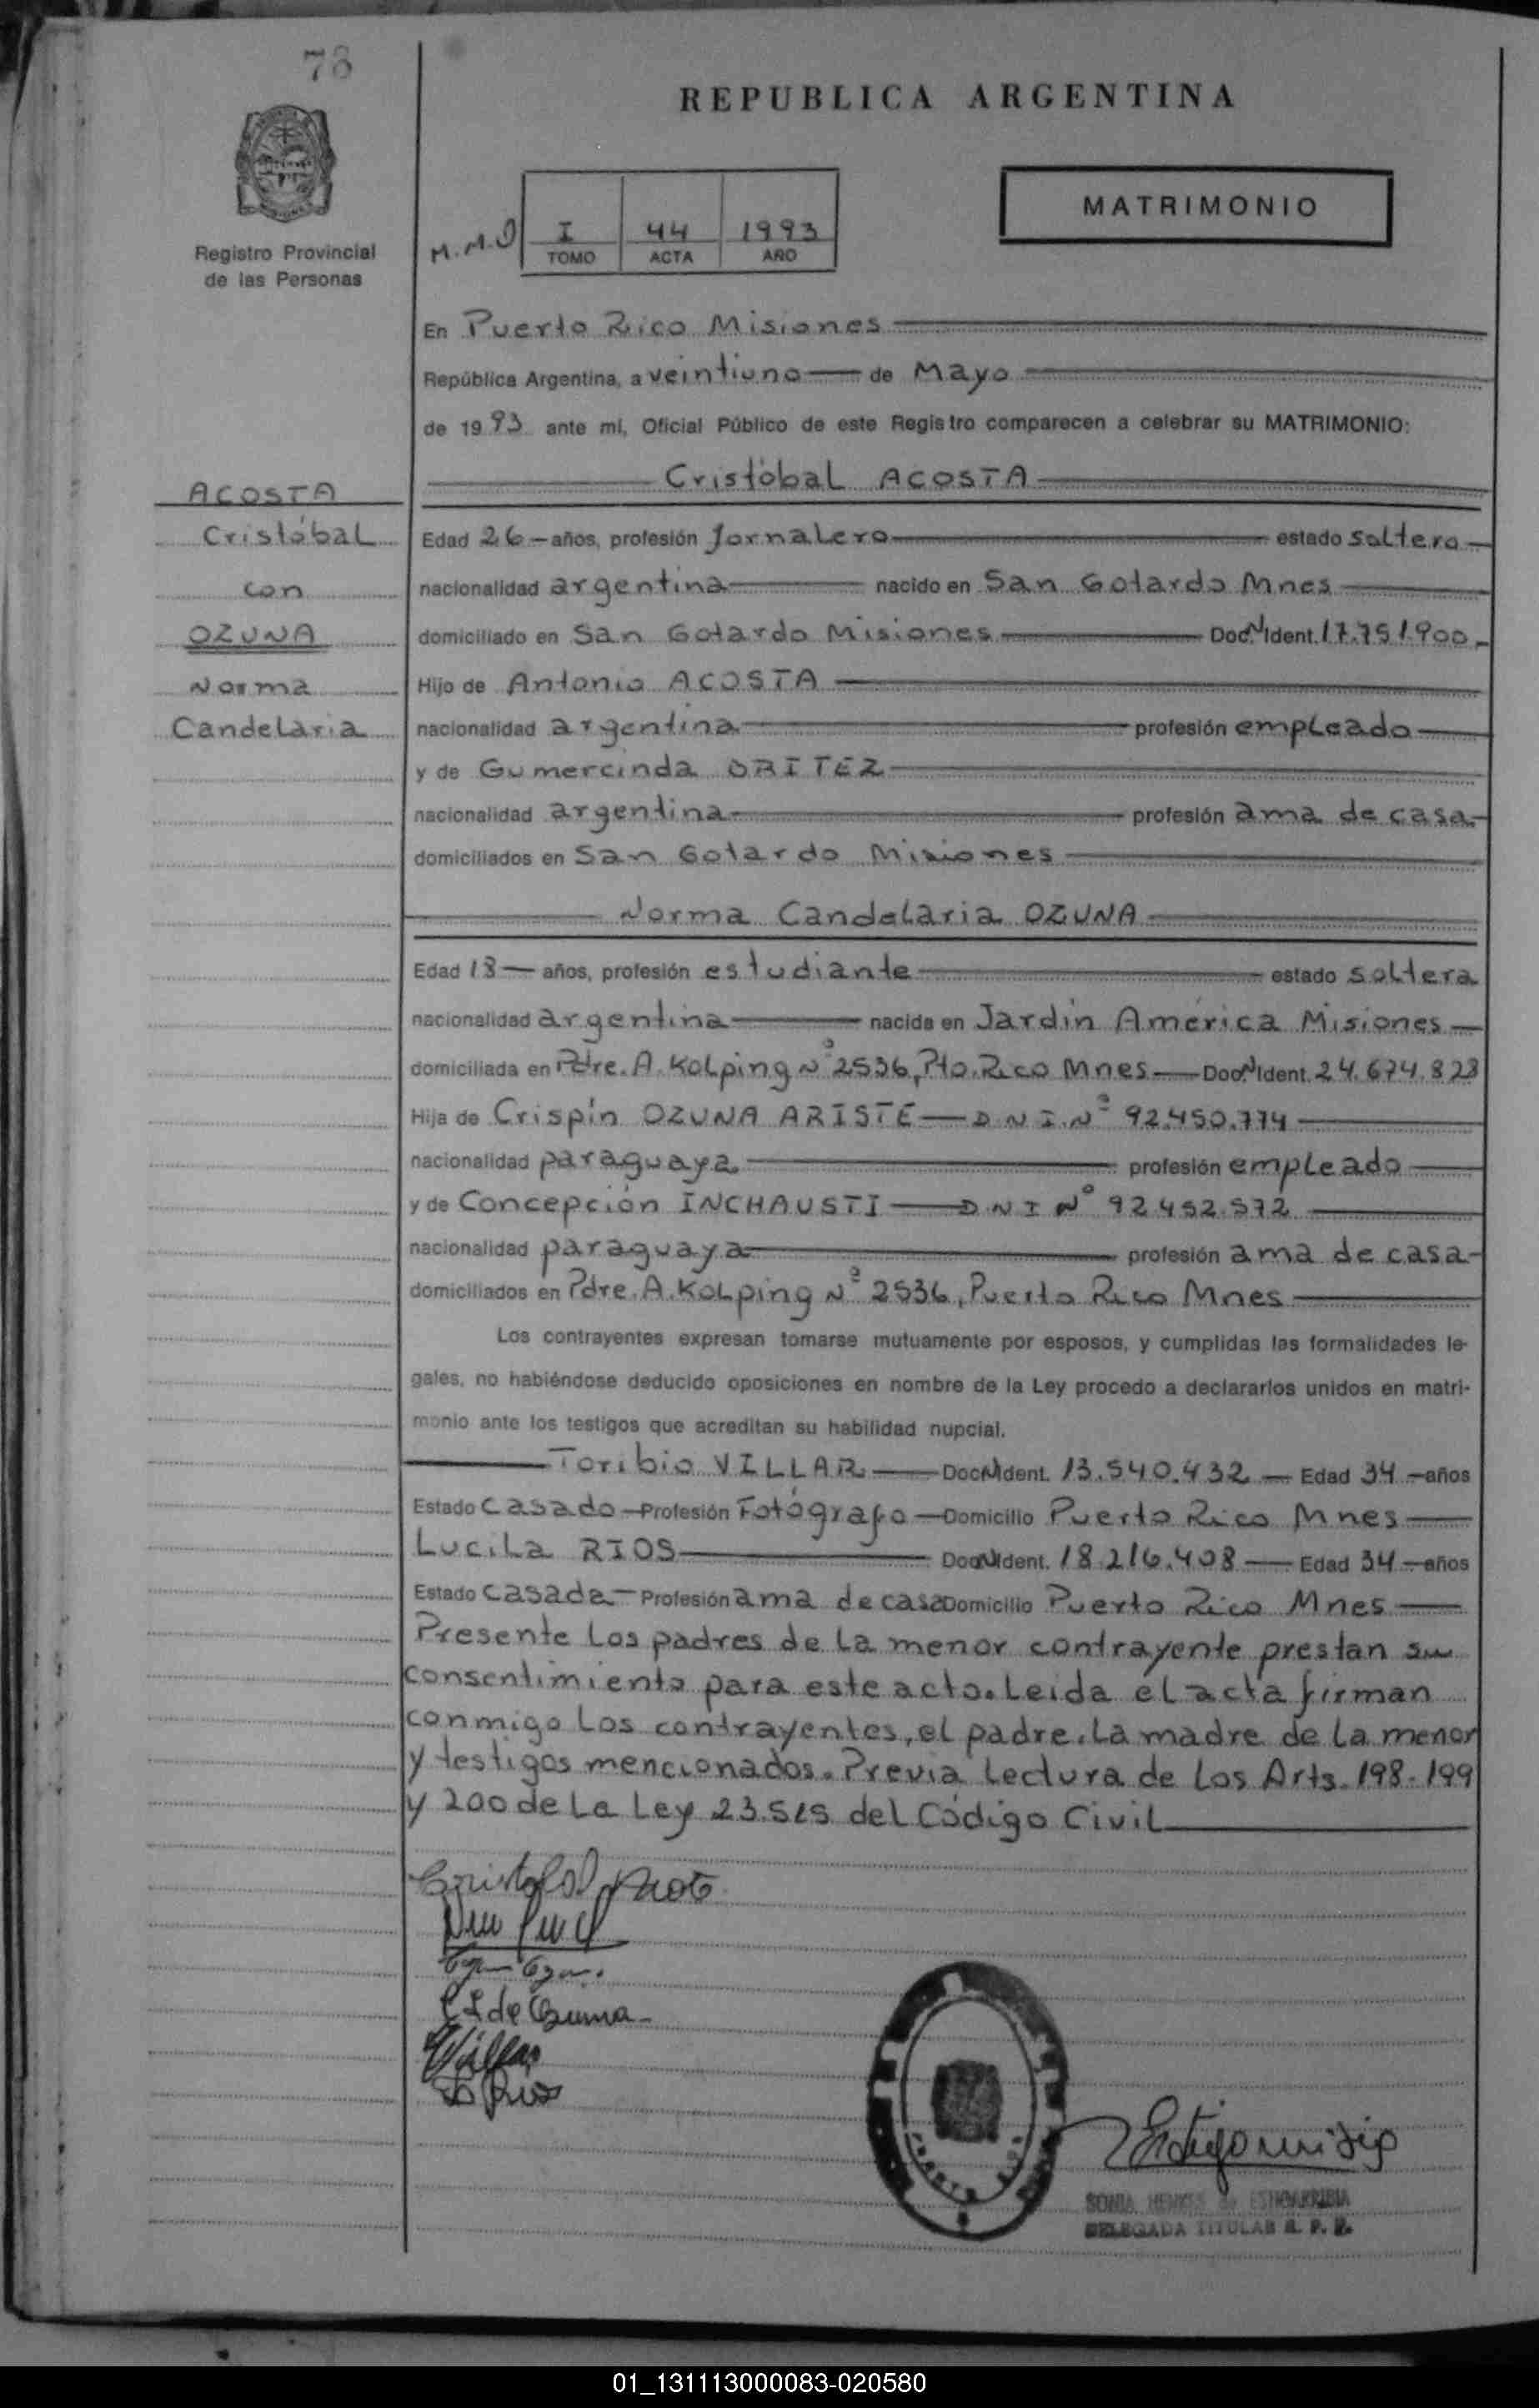 78
REPUBLICA ARGENTINA
MATRIMONIO
Registro Provincial
de las Personas
M.M.O
I 44 1993
TOMO ACTA AÑO
En Puerto Rico Misiones
República Argentina, a veintiuno de Mayo
de 1993 ante mí, Oficial Público de este Registro comparecen a celebrar su MATRIMONIO:
Cristóbal ACOSTA
ACOSTA
Cristóbal
con
OZUNA
Norma
Candelaria
Edad 26 años, profesión Jornalero estado soltero
nacionalidad argentina nacido en San Gotardo Mnes
domiciliado en San Gotardo Misiones Doc. N Ident. 17.751.900
Hijo de Antonio ACOSTA
nacionalidad argentina profesión empleado
y de Gumercinda ORITEZ
nacionalidad argentina profesión ama de casa
domiciliados en San Gotardo Misiones
Norma Candelaria OZUNA
Edad 18 años, profesión estudiante estado soltera
nacionalidad argentina nacida en Jardín América Misiones
domiciliada en Pdre. A. Kolping Nº 2536, Pto. Rico Mnes Doc. N Ident. 24.674.828
Hija de Crispín OZUNA ARISTE D.N.I. Nº 92.450.774
nacionalidad paraguaya profesión empleado
y de Concepción INCHAUSTI D.N.I Nº 92.452.572
nacionalidad paraguaya profesión ama de casa
domiciliados en Pdre. A. Kolping Nº 2536, Puerto Rico Mnes
Los contrayentes expresan tomarse mutuamente por esposos, y cumplidas las formalidades le-
gales, no habiéndose deducido oposiciones en nombre de la Ley procedo a declararlos unidos en matri-
monio ante los testigos que acreditan su habilidad nupcial.
Toribio VILLAR Doc. N Ident. 13.540.432 Edad 34 años
Estado casado Profesión Fotógrafo Domicilio Puerto Rico Mnes
Lucila RIOS Doc. N Ident. 18.216.408 Edad 34 años
Estado casada Profesión ama de casa Domicilio Puerto Rico Mnes
Presente Los padres de La menor contrayente prestan su
consentimiento para este acto. Leida el acta firman
conmigo Los contrayentes, el padre. La madre de La menor
y testigos mencionados. Previa Lectura de Los Arts. 198-199
y 200 de La Ley 23.515 del Código Civil
Villar
SONIA
DELEGADA TITULAR R. P. P.
01_131113000083-020580